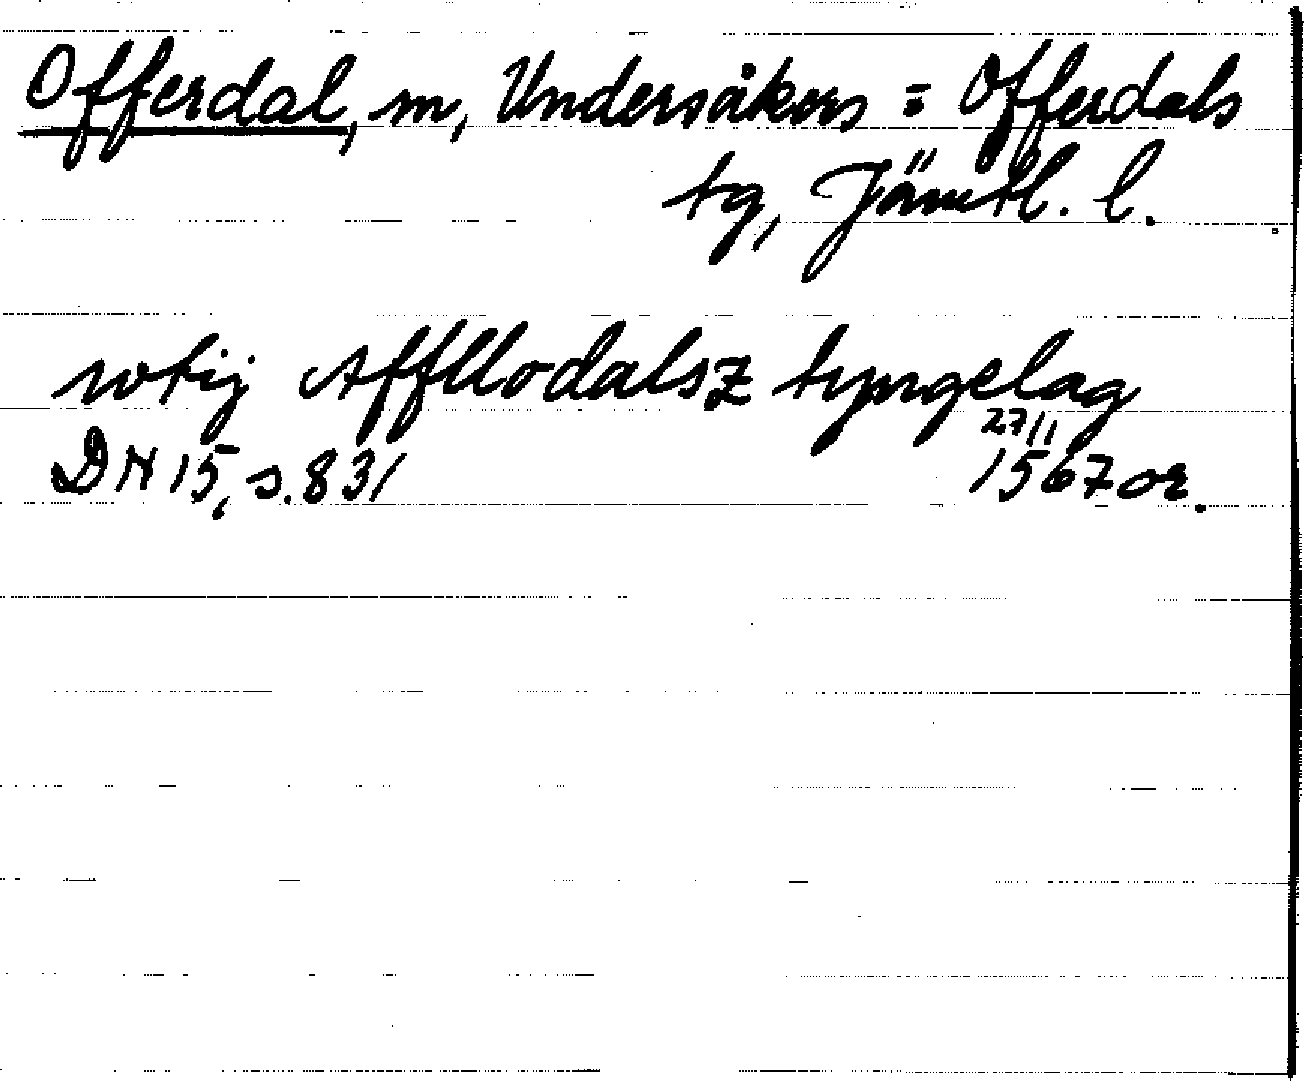 Offerdal, sn, Undersåkers = Offerdals
tg, Jämtl. l.
wtij Affllodalsz tyngelag
27/11
DN 15, s. 831 1567 or.